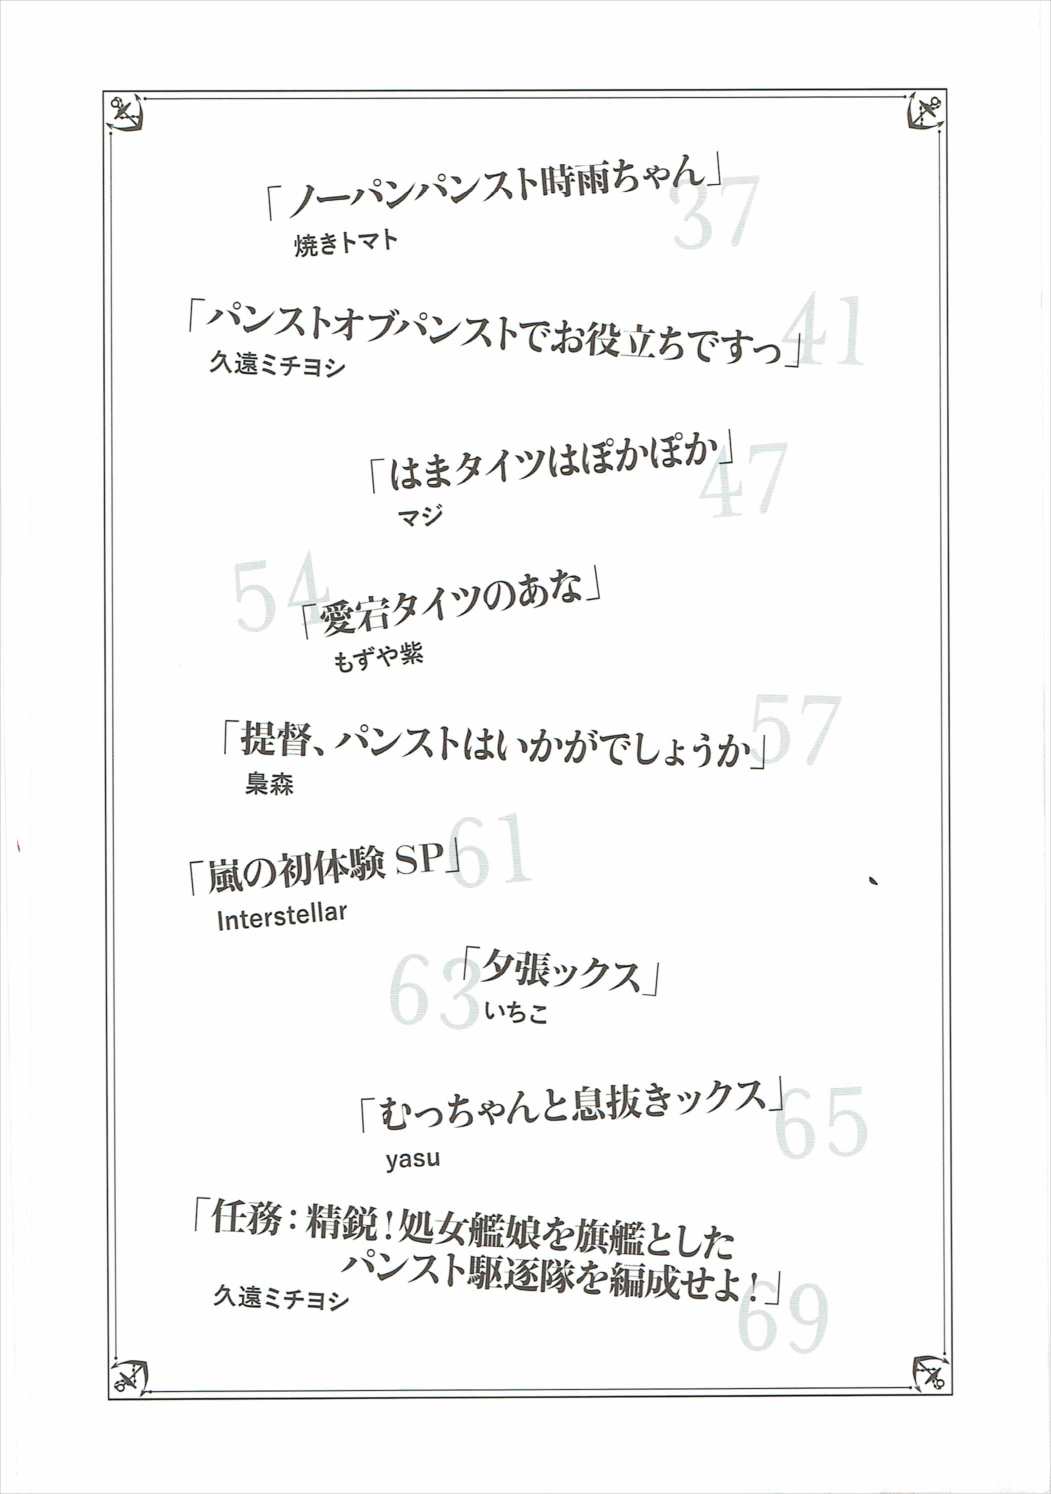 「ノーパンパンスト時雨ちゃん」
37
焼きトマト
「パンストオブパンストでお役立ちですっ」
41
久遠ミチヨシ
「はまタイツはぽかぽか」
47
マジ
54
「愛宕タイツのあな」
もずや紫
「提督、パンストはいかがでしょうか」
57
梟森
「嵐の初体験 SP」
61
Interstellar
63
「夕張ックス」
いちこ
「むっちゃんと息抜きックス」
65
yasu
「任務：精鋭！処女艦娘を旗艦とした
パンスト駆逐隊を編成せよ！」
久遠ミチヨシ
69